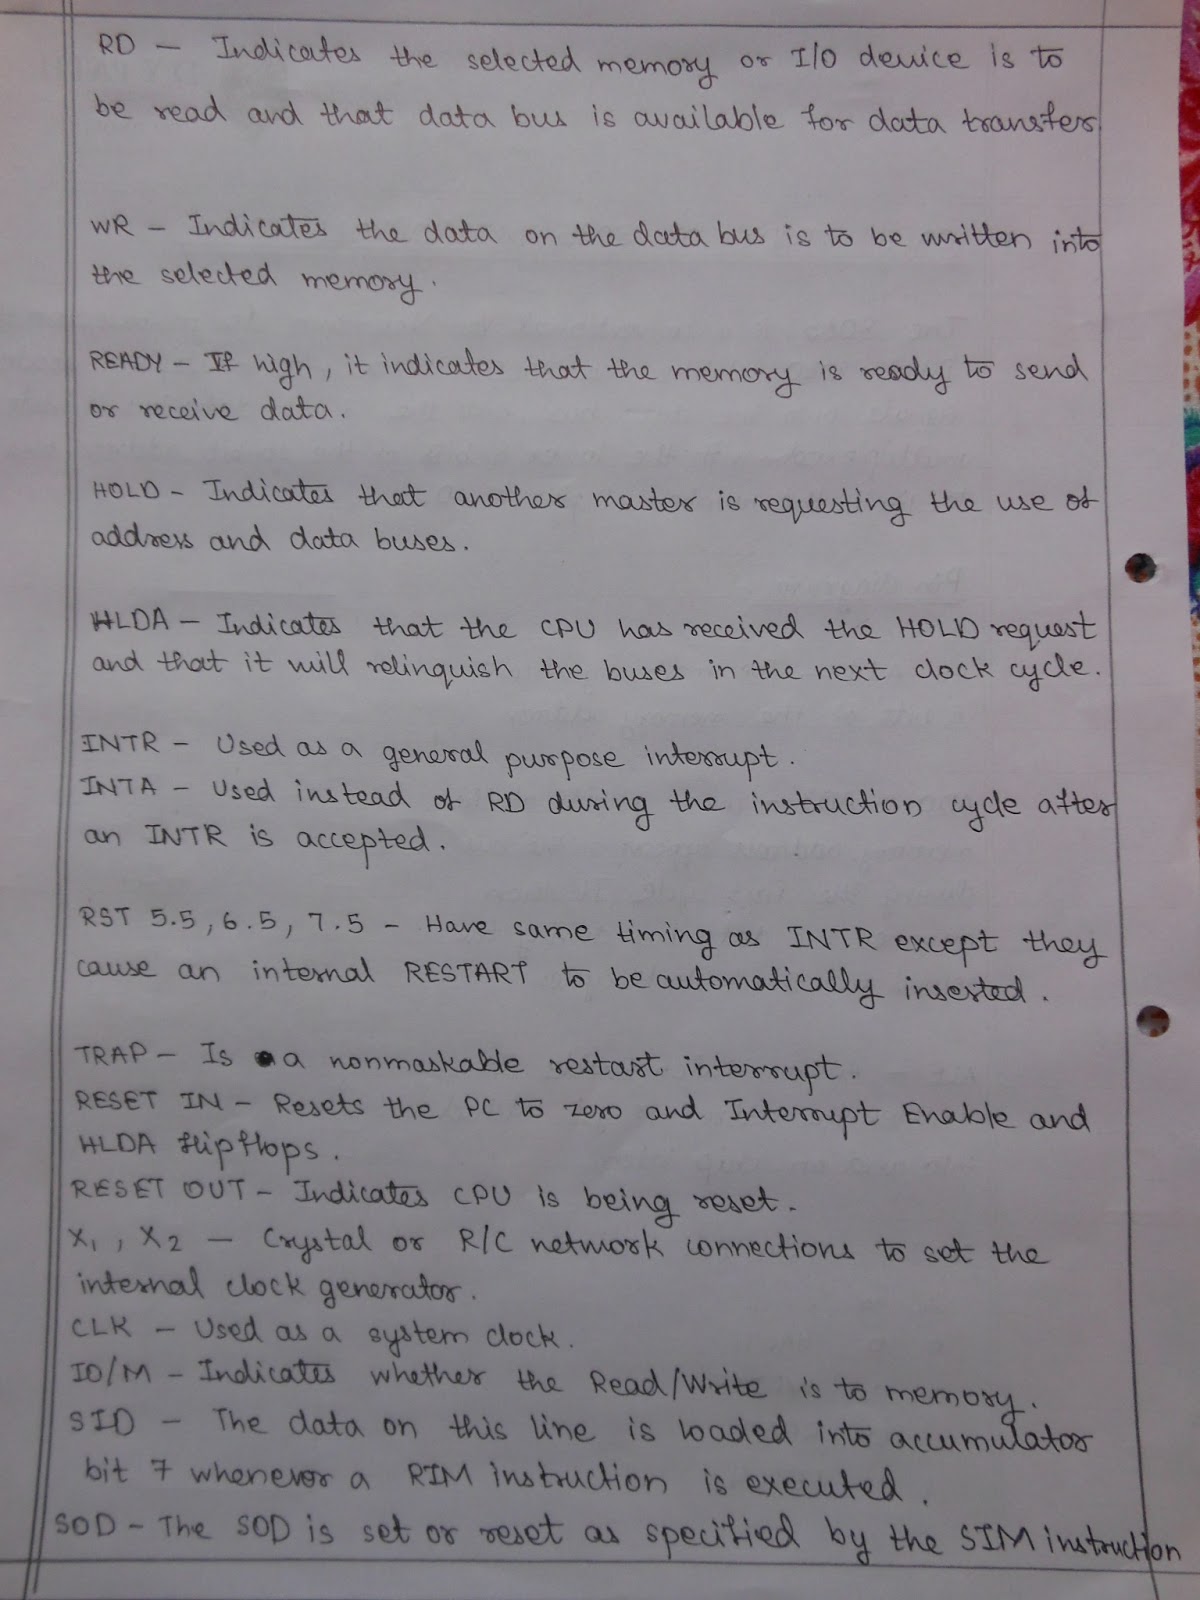 RD – Indicates the selected memory or I/O device is to
be read and that data bus is available for data transfer
WR – Indicates the data on the data bus is to be written into
the selected memory.
READY – If high, it indicates that the memory is ready to send
or receive data.
HOLD – Indicates that another master is requesting the use of
address and data buses.
HLDA – Indicates that the CPU has received the HOLD request
and that it will relinquish the buses in the next clock cycle.
INTR – Used as a general purpose interrupt.
INTA – Used instead of RD during the instruction cycle after
an INTR is accepted.
RST 5.5, 6.5, 7.5 – Have same timing as INTR except they
cause an internal RESTART to be automatically inserted.
TRAP – Is a nonmaskable restart interrupt.
RESET IN – Resets the PC to zero and Interrupt Enable and
HLDA flipflops.
RESET OUT – Indicates CPU is being reset.
X1, X2 – Crystal or R/C network connections to set the
internal clock generator.
CLK – Used as a system clock.
IO/M – Indicates whether the Read/Write is to memory.
SID – The data on this line is loaded into accumulator
bit 7 whenever a RIM instruction is executed.
SOD – The SOD is set or reset as specified by the SIM instruction